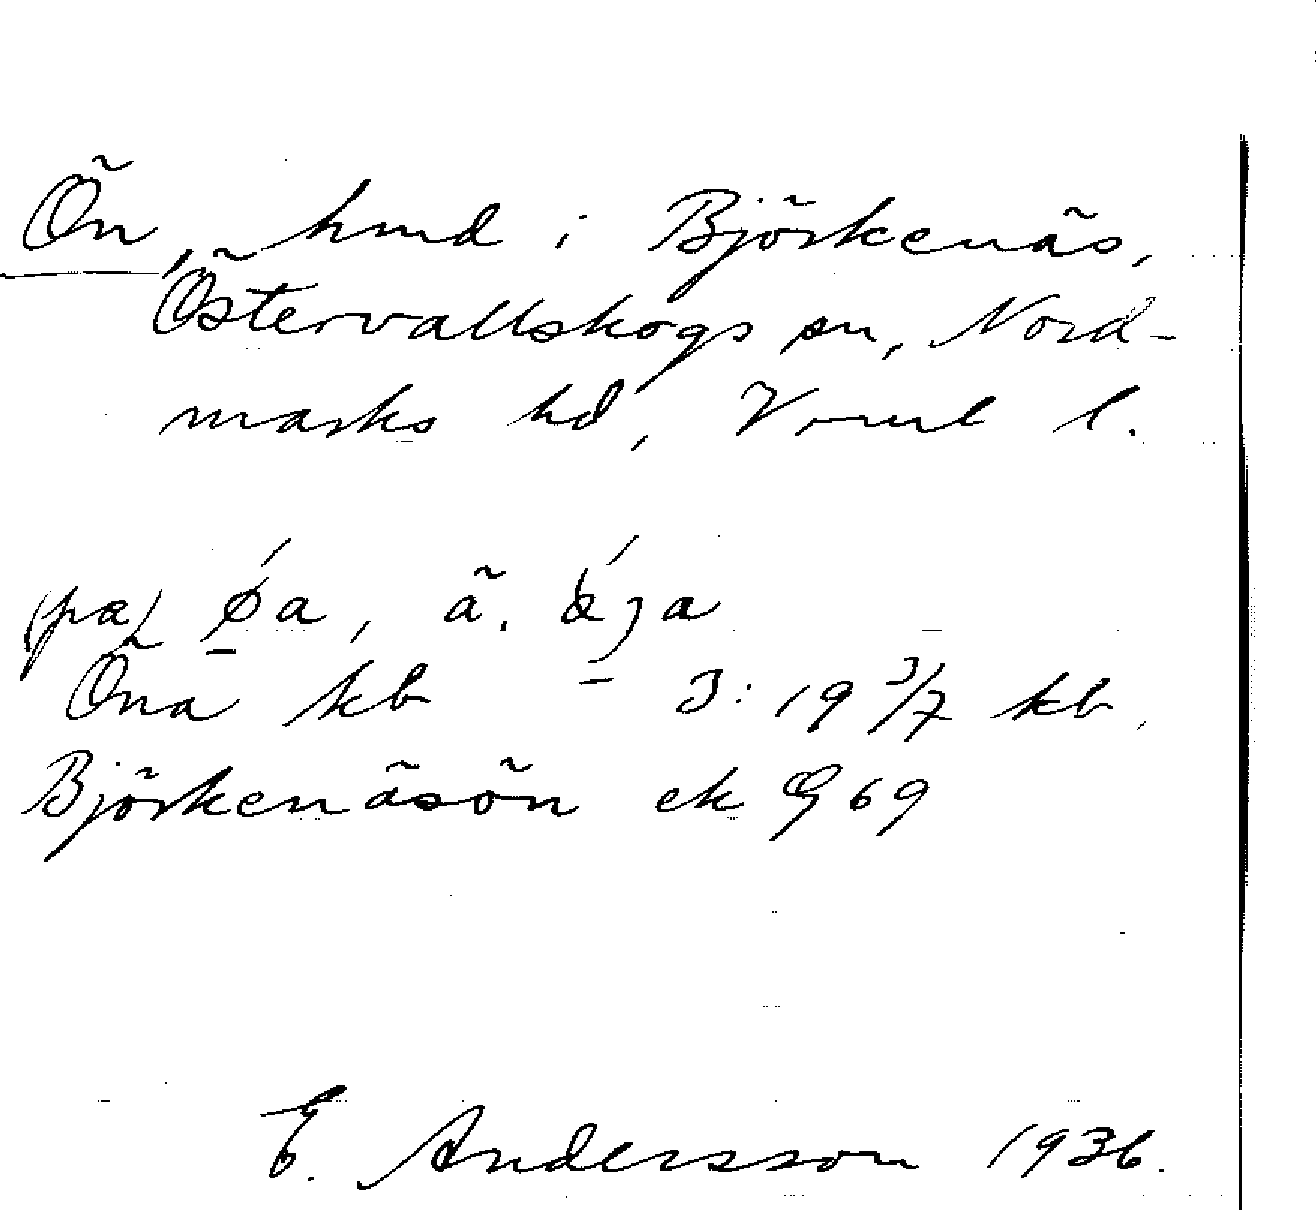 Ön, hmd i Björkenäs,
Östervallskogs sn, Nord-
marks hd, Vrml l.
(pa) ǿa, ä. ǿja
Öna kb J: 19 3/7 kb.
Björkenäsön ek G 69
E. Andersson 1936.